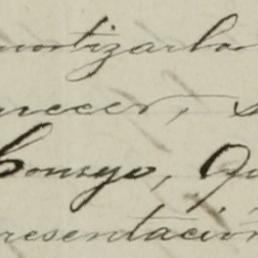 mortizarlos
necer, s
Consejo, Qu
resentación